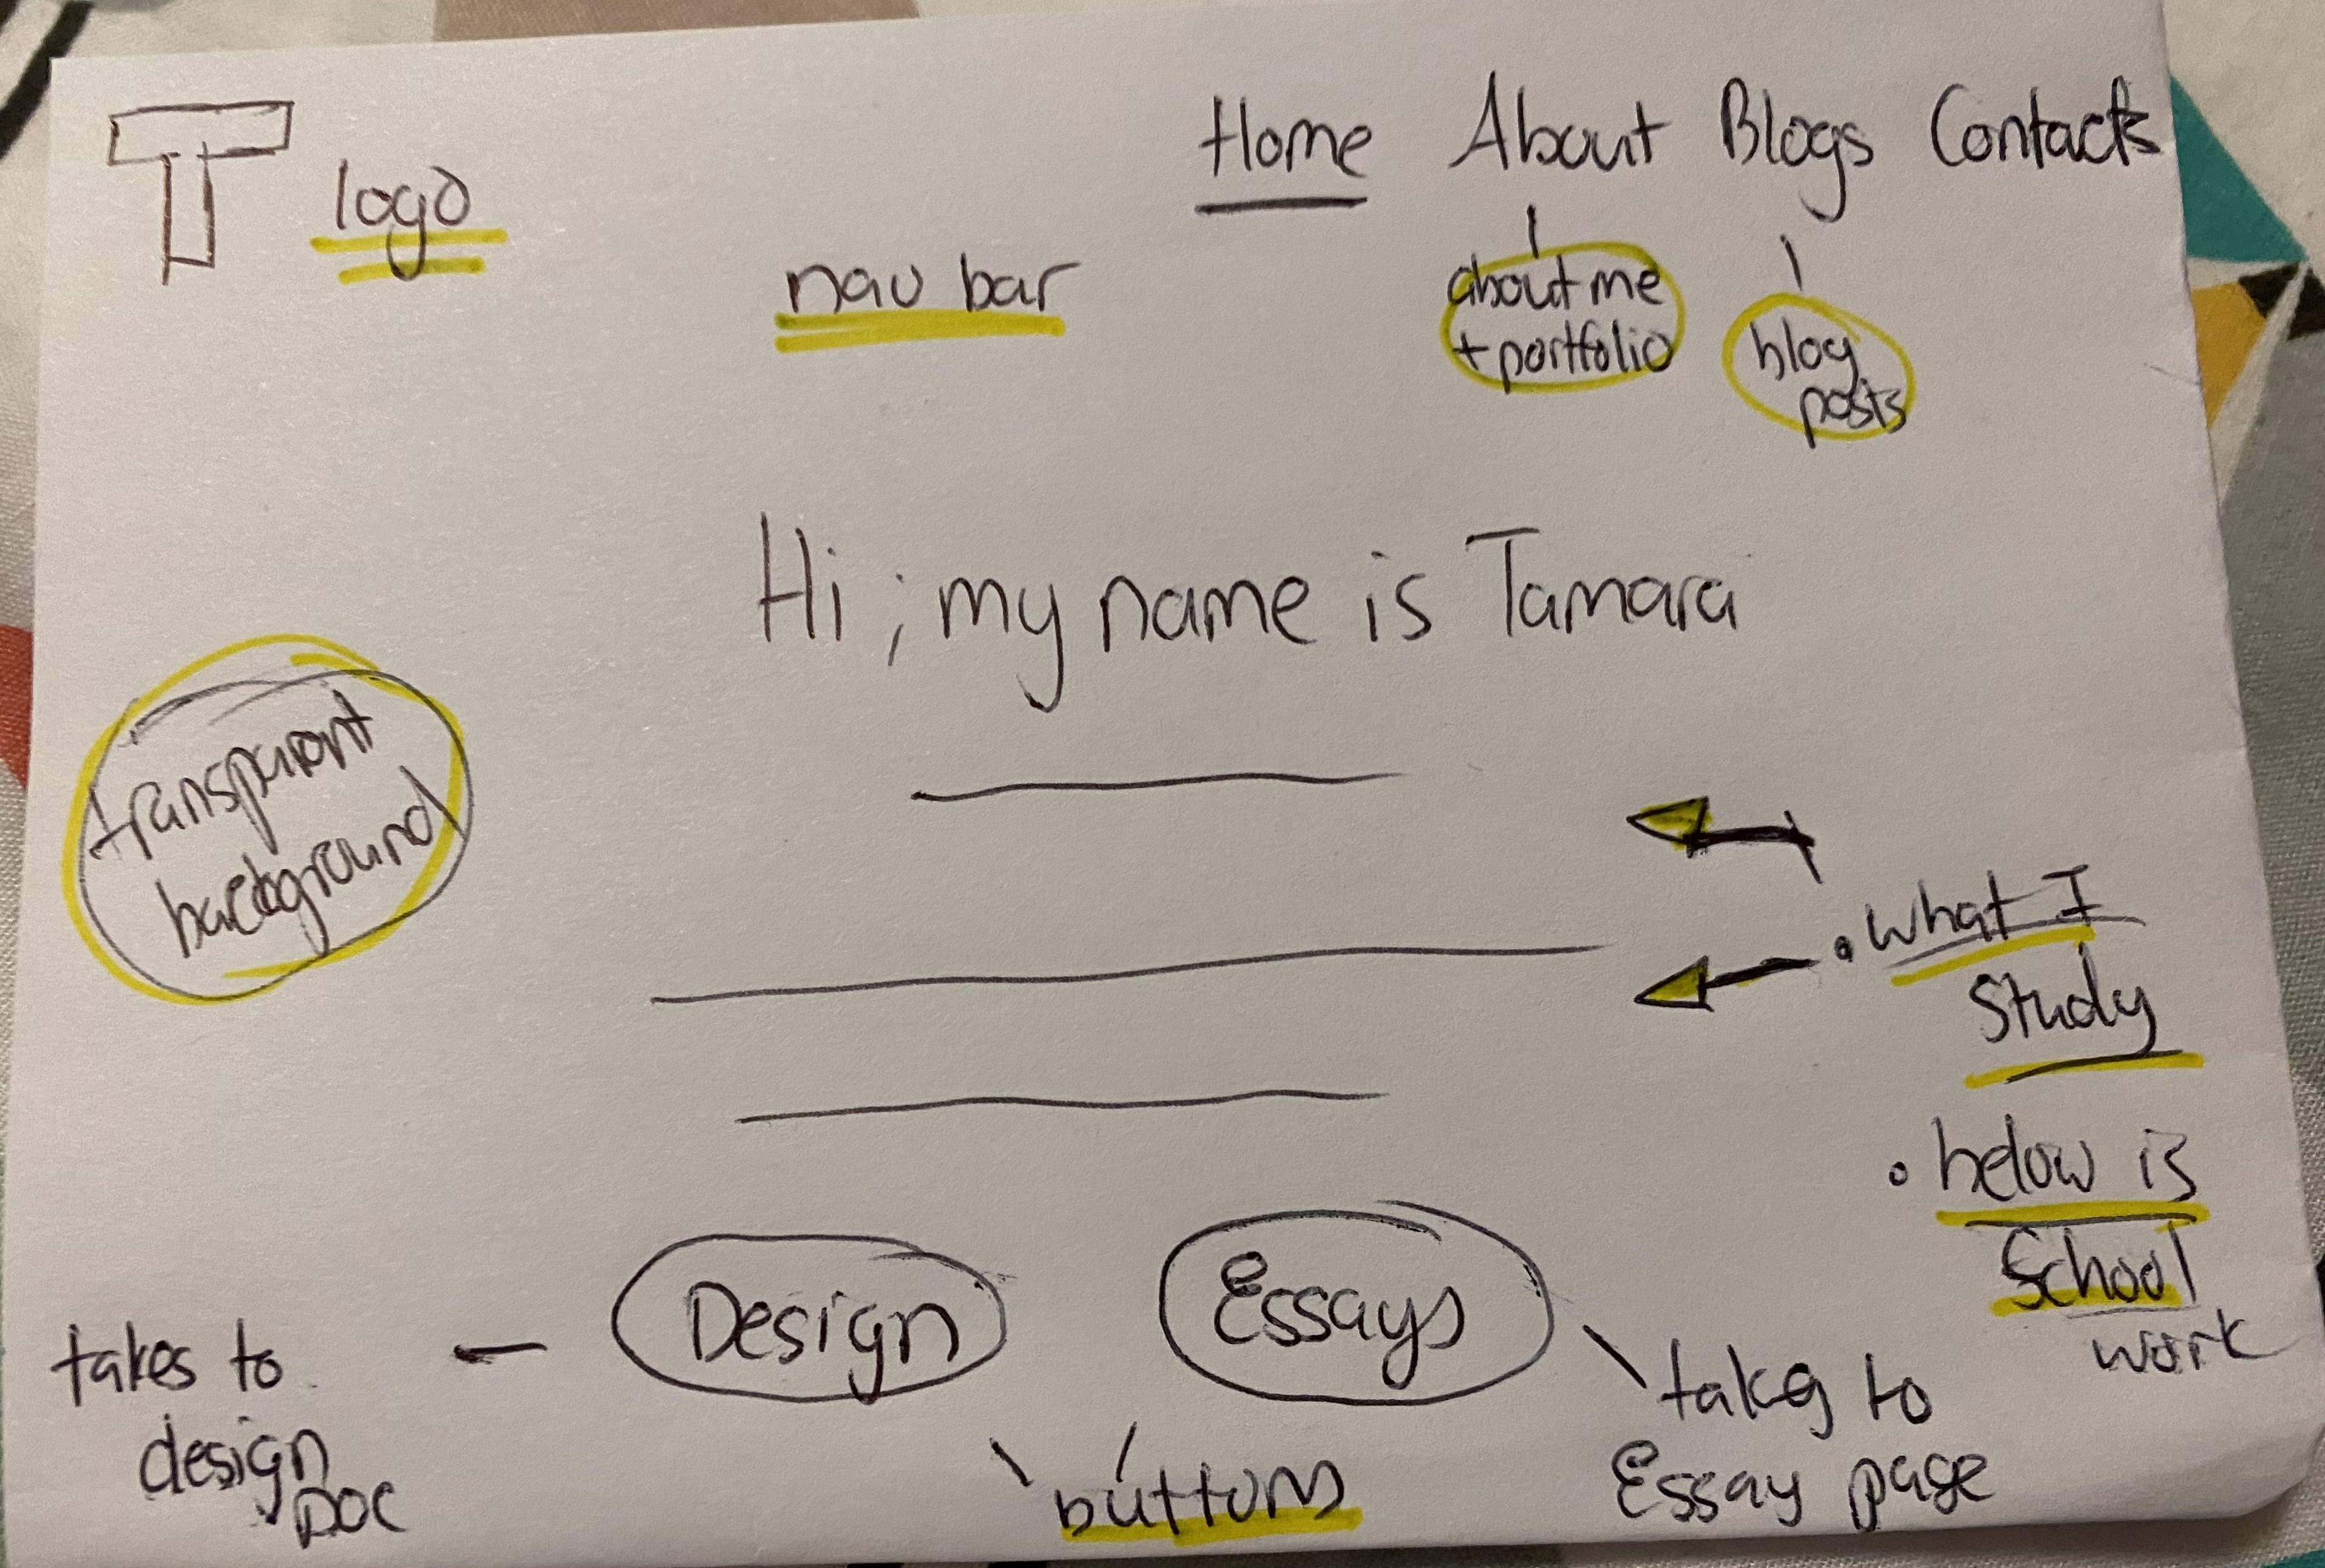 T
logo
Home About Blogs Contacts
nav bar
about me
+ portfolio
blog
posts
Hi; my name is Tamara
transparent
background
• what I
study
• below is
school
work
Design
Essays
takes to
design
DOC
buttons
takes to
Essay page